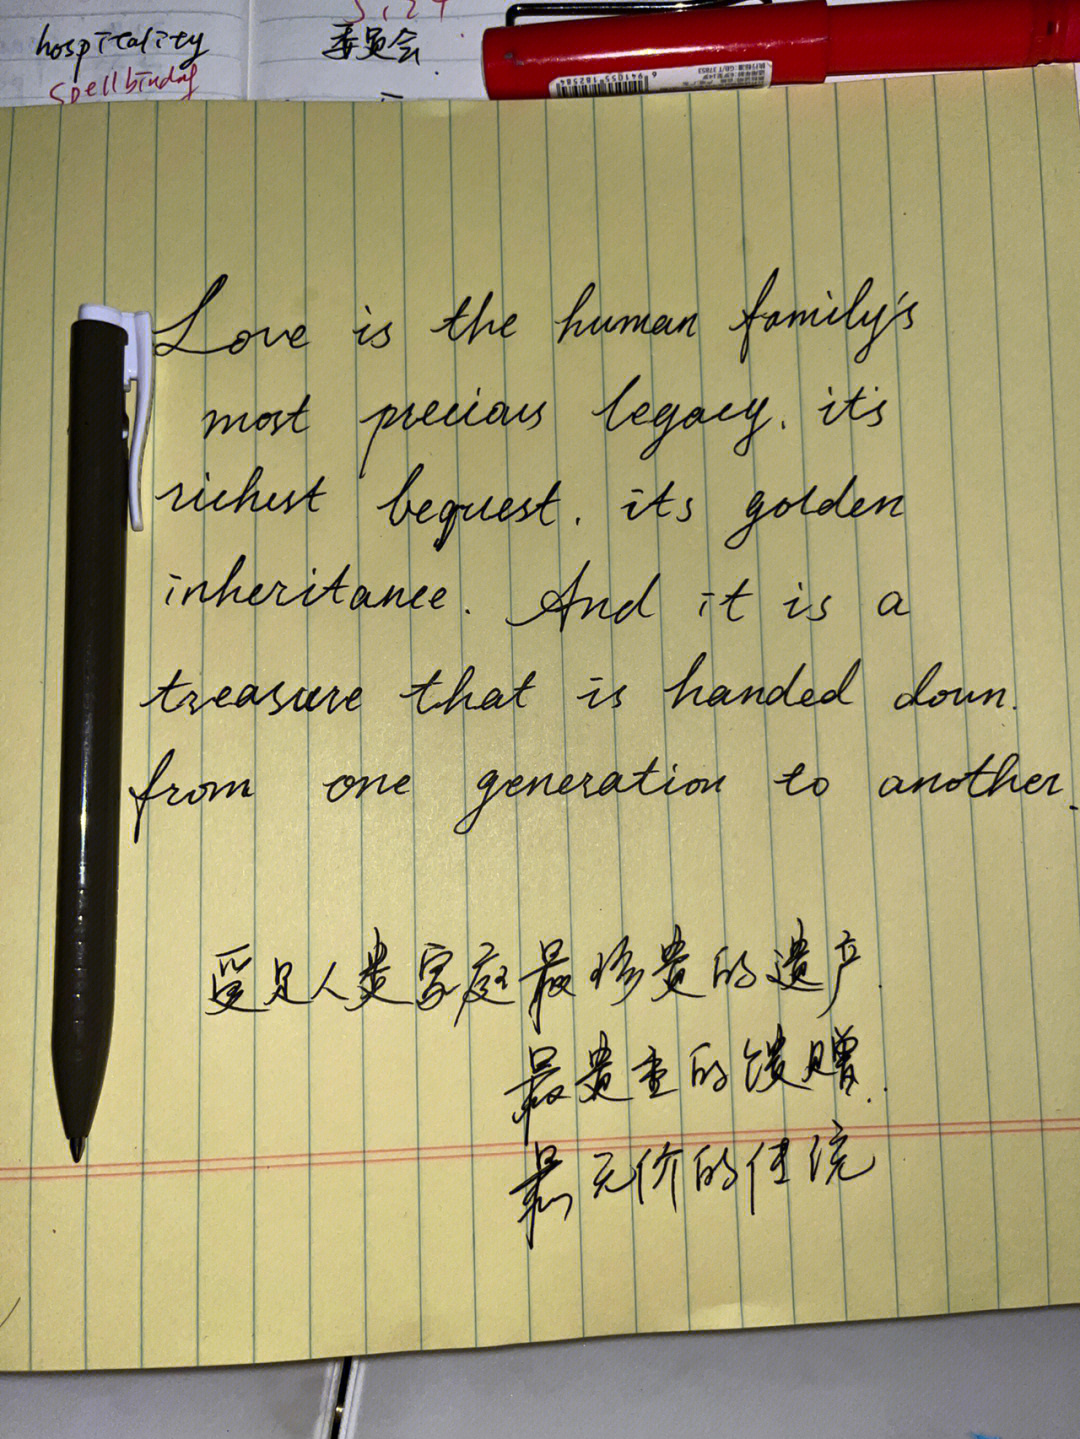 hospitality
委员会
spellbinding
6941055182584
Love is the human family's
most precious legacy, it's
richest bequest, its golden
inheritance. And it is a
treasure that is handed down.
from one generation to another.
爱是人类家庭最珍贵的遗产.
最贵重的馈赠.
最无价的传统